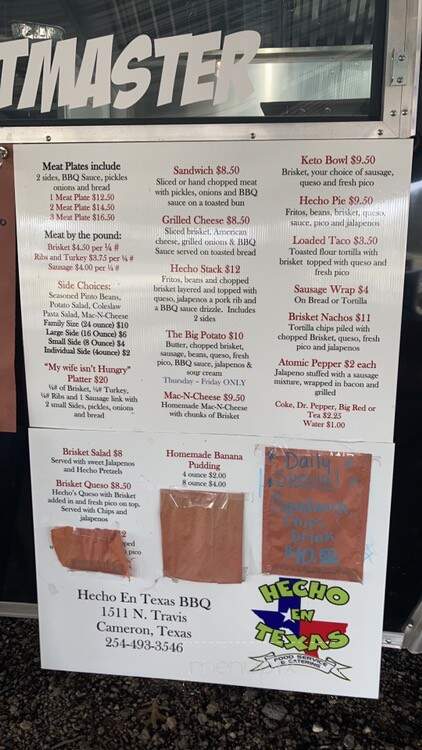 TMASTER
Meat Plates include
2 sides, BBQ Sauce, pickles
onions and bread
1 Meat Plate $12.50
2 Meat Plate $14.50
3 Meat Plate $16.50
Meat by the pound:
Brisket $4.50 per ¼ #
Ribs and Turkey $3.75 per ¼ #
Sausage $4.00 per ¼ #
Side Choices:
Seasoned Pinto Beans,
Potato Salad, Coleslaw
Pasta Salad, Mac-N-Cheese
Family Size (24 ounce) $10
Large Side (16 Ounce) $6
Small Side (8 Ounce) $4
Individual Side (4ounce) $2
"My wife isn't Hungry"
Platter $20
¼# of Brisket, ¼# Turkey,
¼# Ribs and 1 Sausage link with
2 small Sides, pickles, onions
and bread
Sandwich $8.50
Sliced or hand chopped meat
with pickles, onions and BBQ
sauce on a toasted bun
Grilled Cheese $8.50
Sliced brisket, American
cheese, grilled onions & BBQ
Sauce served on toasted bread
Hecho Stack $12
Fritos, beans and chopped
brisket layered and topped with
queso, jalapenos a pork rib and
a BBQ sauce drizzle. Includes
2 sides
The Big Potato $10
Butter, chopped brisket,
sausage, beans, queso, fresh
pico, BBQ sauce, jalapeños &
sour cream
Thursday - Friday ONLY
Mac-N-Cheese $9.50
Homemade Mac-N-Cheese
with chunks of Brisket
Keto Bowl $9.50
Brisket, your choice of sausage,
queso and fresh pico
Hecho Pie $9.50
Fritos, beans, brisket, queso,
sauce, pico and jalapenos
Loaded Taco $3.50
Toasted flour tortilla with
brisket topped with queso and
fresh pico
Sausage Wrap $4
On Bread or Tortilla
Brisket Nachos $11
Tortilla chips piled with
chopped Brisket, queso, fresh
pico and jalapenos
Atomic Pepper $2 each
Jalapeno stuffed with a sausage
mixture, wrapped in bacon and
grilled
Coke, Dr. Pepper, Big Red or
Tea $2.25
Water $1.00
Brisket Salad $8
Served with sweet Jalapenos
and Hecho Pretzels
Brisket Queso $8.50
Hecho's Queso with Brisket
added in and fresh pico on top.
Served with Chips and
jalapenos
2
ped
pico
Homemade Banana
Pudding
4 ounce $2.00
8 ounce $4.00
Daily
Special
Sandwich
Chips
Drink
Hecho En Texas BBQ
1511 N. Travis
Cameron, Texas
254-493-3546
HECHO
EN
TEXAS
FOOD SERVICE
& CATERING